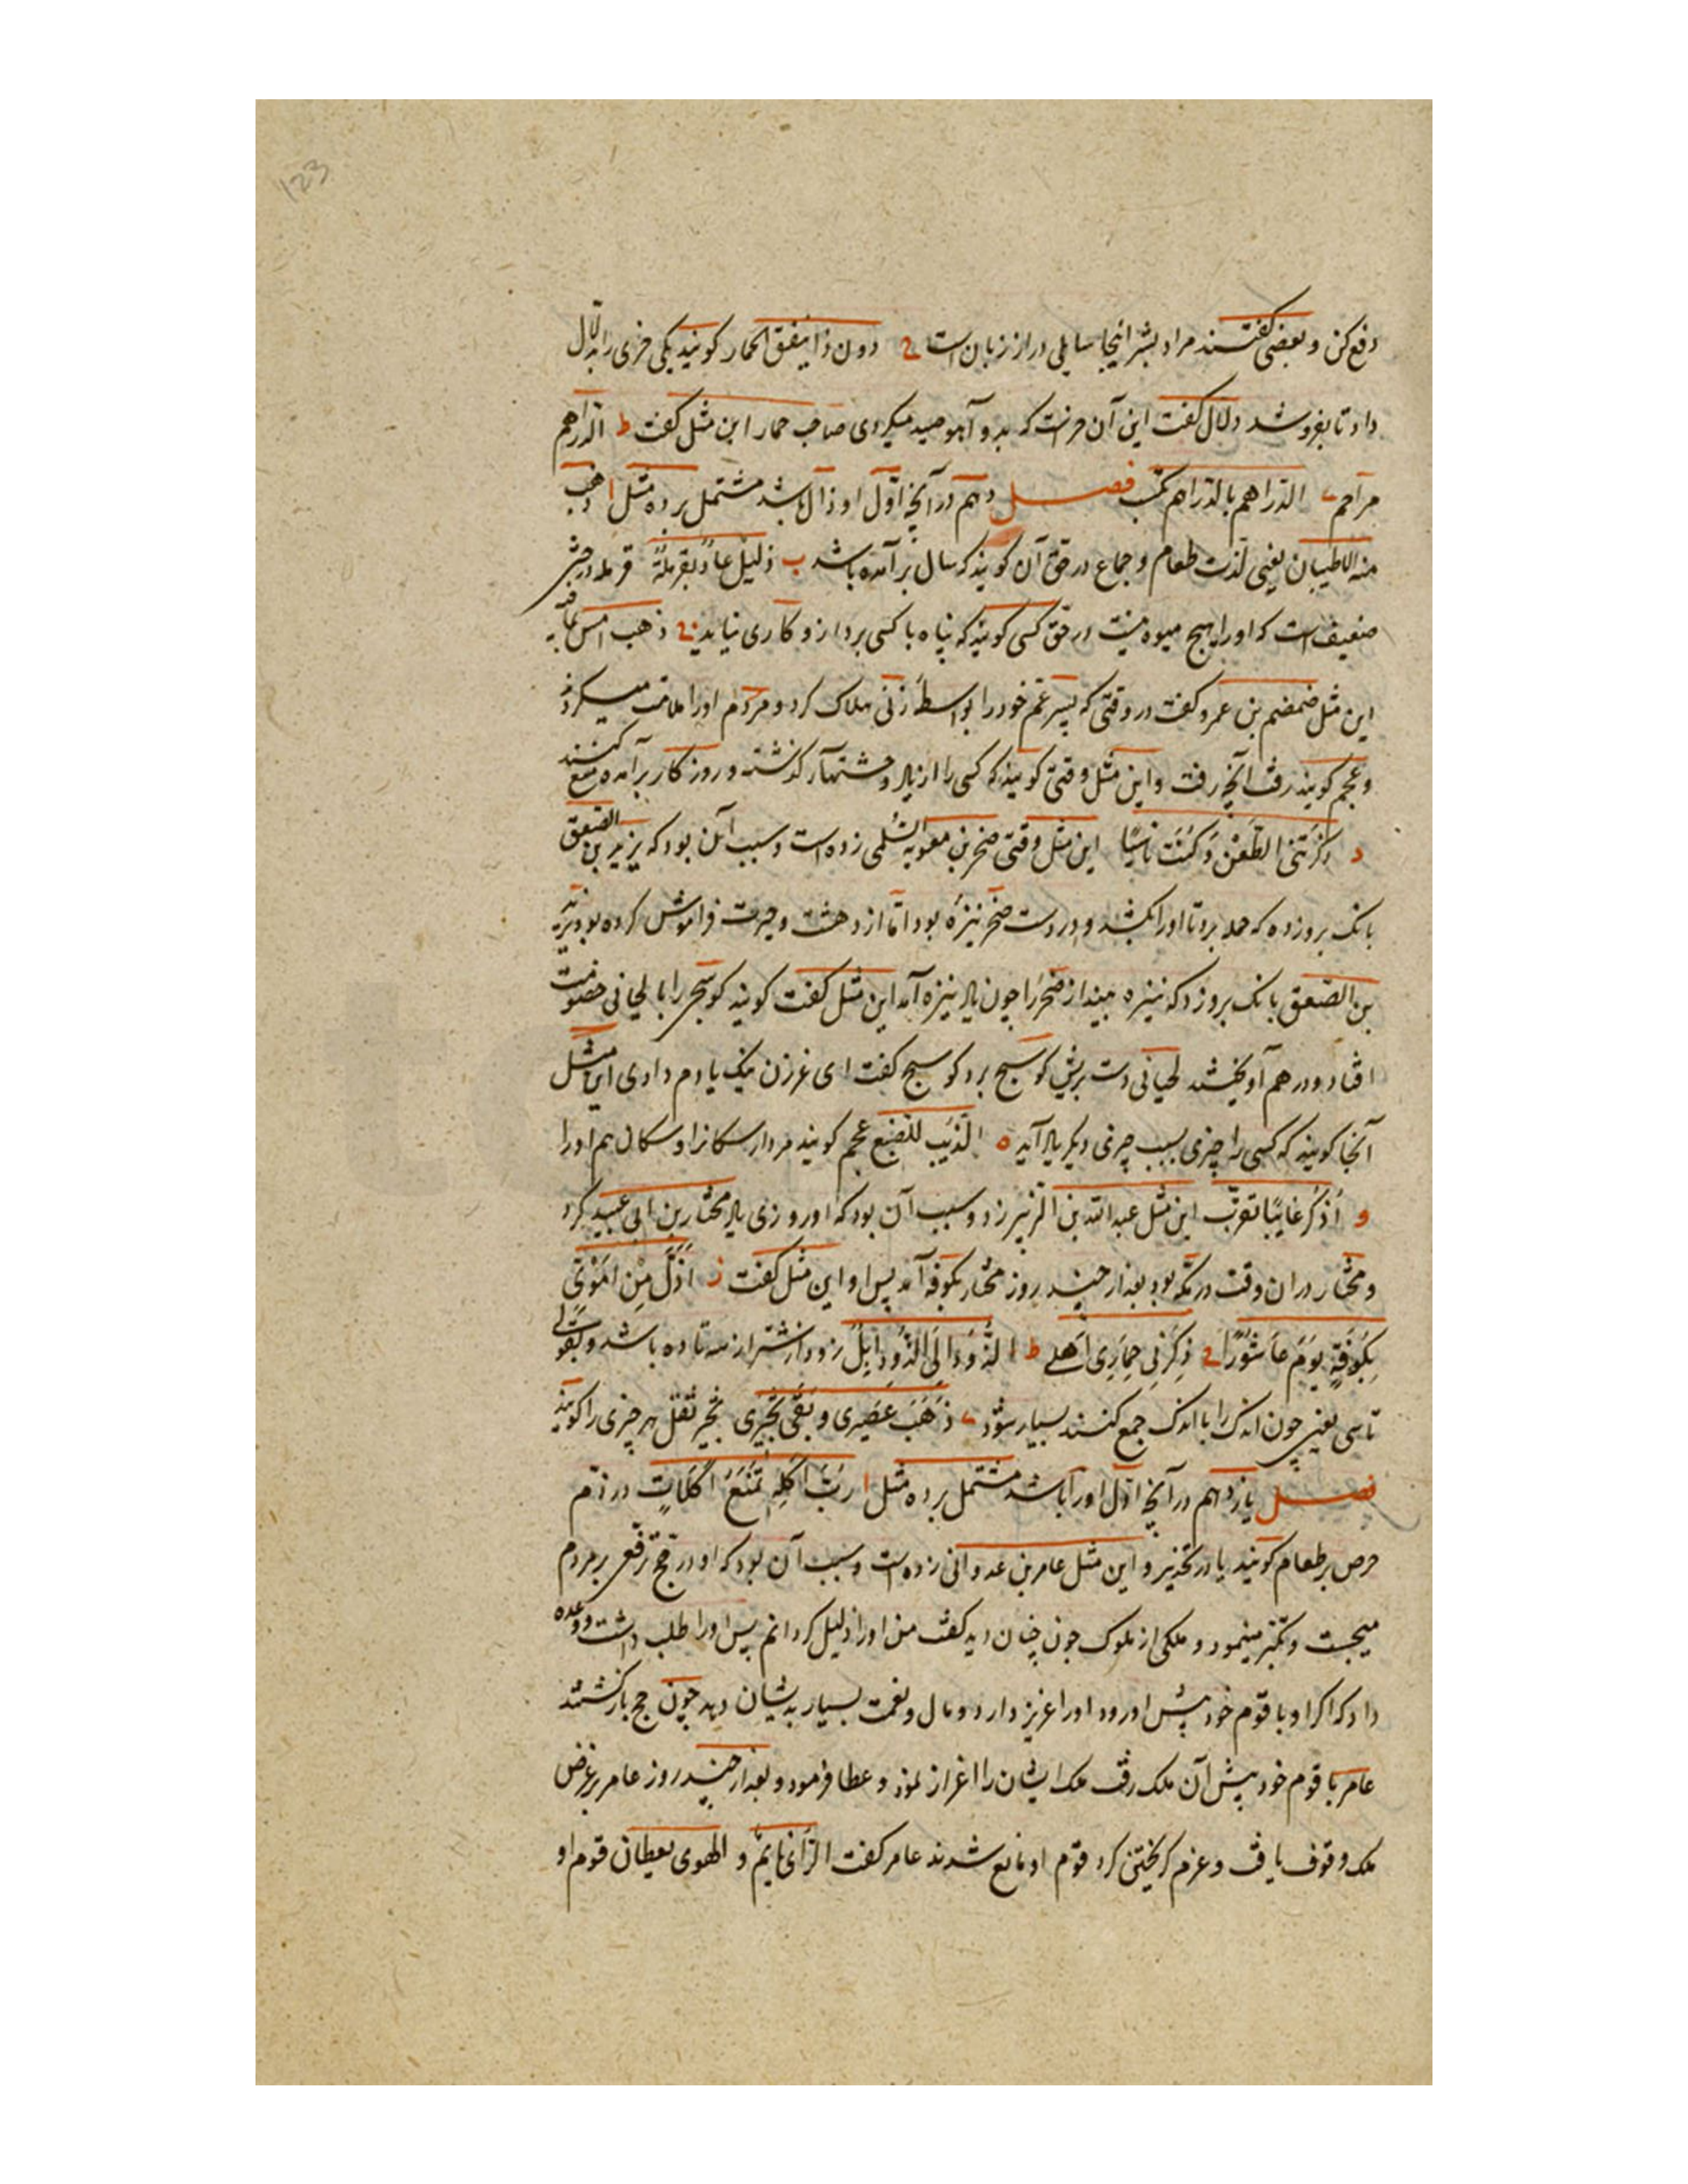 123
دفع کن و بعضی گفتند مراد بشر اینجا سایلی دراز زبان است ح دون ذا ینفق الحمار کویند یکی خری را بدلال
داد تا بفروشد دلال گفت این آن خرست که بدو آهو صید میکردی صاحب حمار این مثل گفت ط الدراهم
مراهم ی الدراهم بالدراهم تکسب فصل دهم در آنچه اوّل او ذال باشد مشتمل بر ده مثل ا ذهب
منه الاطیبان یعنی لذت طعام و جماع در حق آن کویند که سال برآمده باشد ب ذلیل عاذ بقرملة قرمله درختی
ضعیف است که او را هیچ میوه نیست در حق کسی کویند که پناه با کسی برد از و کاری نیاید ج ذهب امس بما فیه
این مثل ضمضم بن عمرو کفت در وقتی که پسر عم خود را بواسطهٔ زنی هلاک کرد و مردم او را ملامت میکردند
و عجم کویند رفت آنچه رفت و این مثل وقتی کویند که کسی را از یاد و مشتهاء کذشته و روزکار برآمده منع کنند
د ذکرتنی الطعن و کنت ناسیًا این مثل وقتی صخر بن معویه السلمی زده است و سبب آن بود که یزید بن الصعق
بانک برو زده که حمله برد تا او را بکشد و در دست صخر نیزهٔ بود اما از دهشت و حیرت فراموش کرده بود یزید
بن الصعق بانک برو زد که نیزه بینداز صخر را چون یاد نیزه آمد این مثل کفت کویند کوسج را با لحیانی خصومت
افتاد و در هم آویختند لحیانی دست بریش کوسج برد کوسج کفت ای غرزن نیک یادم دادی این مثل
آنجا کویند که کسی را چیزی بسبب چیزی دیکر یاد آید ه الذئب للضبع عجم کویند مردار سکانرا و سکان هم او را
و اُذکر غایبًا تقرب این مثل عبدالله بن الزبیر زد و سبب آن بود که او روزی یاد مختار بن ابی عبید کرد
و مختار در ان وقت در مکه بود بعد از چند روز مختار بکوفه آمد پس او این مثل کفت ز اذلّ من اموی
بکوفة یوم عاشورا ح ذکرنی حماری اهلی ط الذود الی الذود ابل ذود از شتر از سه تا ده باشد و بقولی
تا سی یعنی چون اندک را با اندک جمع کنند بسیار شود ی ذهب عصیری و بقی ثجیری ثجیر ثفل هر چیزی را کویند
فصل یازدهم در آنچه اوّل او را باشد مشتمل بر ده مثل ا ربّ اکلة تمنع اکلات در ذم
حرص بر طعام کویند یا در تحذیر و این مثل عامر بن عدوانی زده است و سبب آن بود که او در حج ترفعی بر مردم
میجست و تکبر مینمود و ملکی از ملوک چون چنان دید کفت من او را ذلیل کردانم پس او را طلب داشت و وعده
داد که اکر او با قوم خود پیش او رود او را عزیز دارد و مال و نعمت بسیار بدیشان دهد چون حج بازکشتند
عامر با قوم خود پیش آن ملک رفت ملک ایشان را اعزاز نمود و عطا فرمود و بعد از چند روز عامر بر غرض
ملک وقوف یافت و عزم کریختن کرد قوم او مانع شدند عامر کفت الرأی نایم و الهوی یقظان قوم او